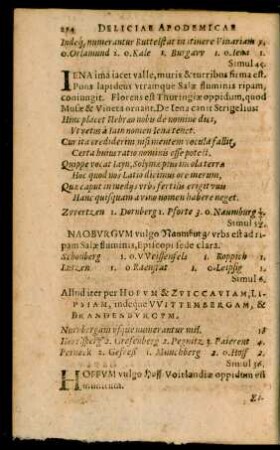 294 DELICIAE APODEMICAE
Indeq, numerantur Buttelstat in itinere Vinariam
0. Orlamund 1. 0. Kale 1. Burgaw 1. 0. Iena 1.
Simul 45.
IENA ima iacet valle, muris & turribus firma est.
Pons lapideus vtramque Salæ fluminis ripam,
coniungit. Florens est Thuringiæ oppidum, quod
Musæ & Vineta ornant. De Iena canit Strigelius:
Hinc placet Hebræo nobis de nomine duci,
Vt vetus à Iain nomen Iena tenet.
Cur ita crediderim nisi mentem vocula fallit,
Certa huius ratio nominis esse potest.
Quippe vocat Iayn, Solymę pius incola terræ
Hoc quod nos Latio dicimus ore merum,
Quæ caput in medijs vrbs fertilis eriget vuis
Hanc quisquam à vino nomen habere neget.
Zevertzen 1. Dornberg 1. Pforte 3. 0. Naumburg
Simul
NAOBVRGVM vulgo Naumburg, vrbs est ad ri-
pam Salæ fluminis, Episcopi sede clara.
Schonberg 1. 0. VVeissenfels 1. Roppich 1.
Lutzen 1. 0 Raenstat 1. 0 Leipsig 1.
Simul 6.
Aliud iter per HOFVM & ZVICCAVIAM, LI-
PSIAM, indeque VVITTENBERGAM, &
BRANDENBVRGVM.
Nurnbergam vsque numerantur mil. 18
2. Grefenberg 2. Pegnitz 3. Paierent 4.
Perneck 2. Gefrees 1. Munchberg 2. 0. Hoff 2.
Simul
HOFFVM vulgo Hoff, Voitlandiæ oppidum est
munitum.